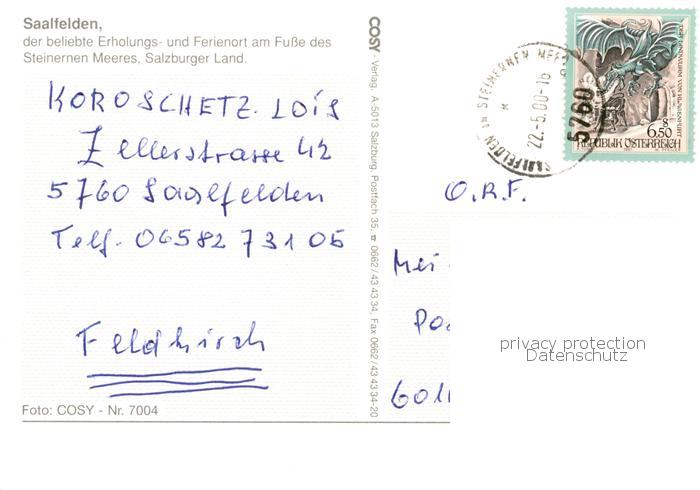 Saalfelden,
der beliebte Erholungs- und Ferienort am Fuße des
Steinernen Meeres, Salzburger Land.
KOROSCHETZ. LOIS
Zellerstrasse 42
5760 Saalfelden
Telf. 06582 73105
Feldkirch
Foto: COSY - Nr. 7004
COSY - Verlag, A-5013 Salzburg, Postfach 35, ☎ 0662/43 43 34, Fax 0662/43 43 34-20
5760 SAALFELDEN AM STEINERNEN MEER
22.-5.00-16
6.50
REPUBLIK ÖSTERREICH
O.R.F.
Mei
Po
601
privacy protection
Datenschutz